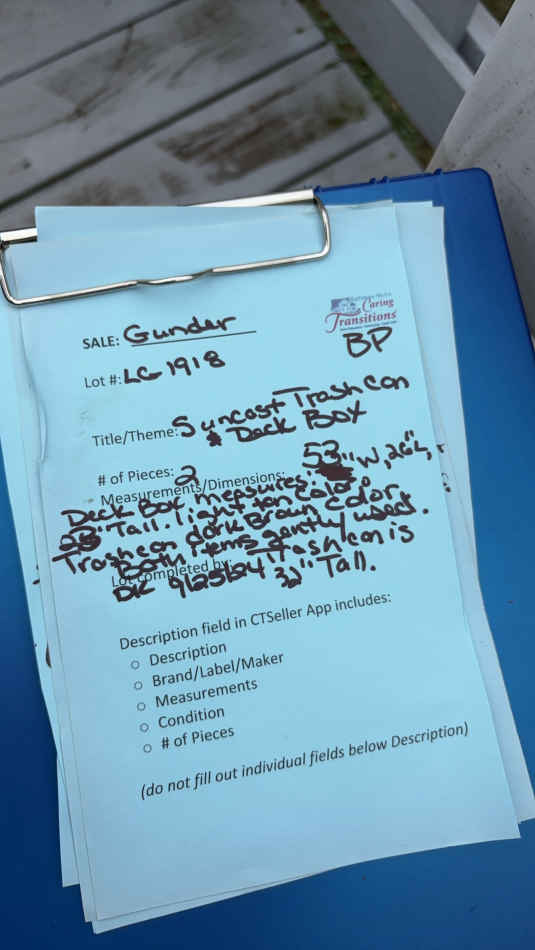 Caring
Transitions
BP
SALE: Gunder
Lot #: LG 1918
Title/Theme: Suncast Trash Can
& Deck Box
# of Pieces: 2
Measurements/Dimensions:
Deck Box measures: 53" W, 26" L,
28" Tall. light tan color.
Trash can dark Brown color.
Both items gently used.
Lot completed by:
DK 9/25/24 Trash can is
32" Tall.
Description field in CTSeller App includes:
○ Description
○ Brand/Label/Maker
○ Measurements
○ Condition
○ # of Pieces
(do not fill out individual fields below Description)